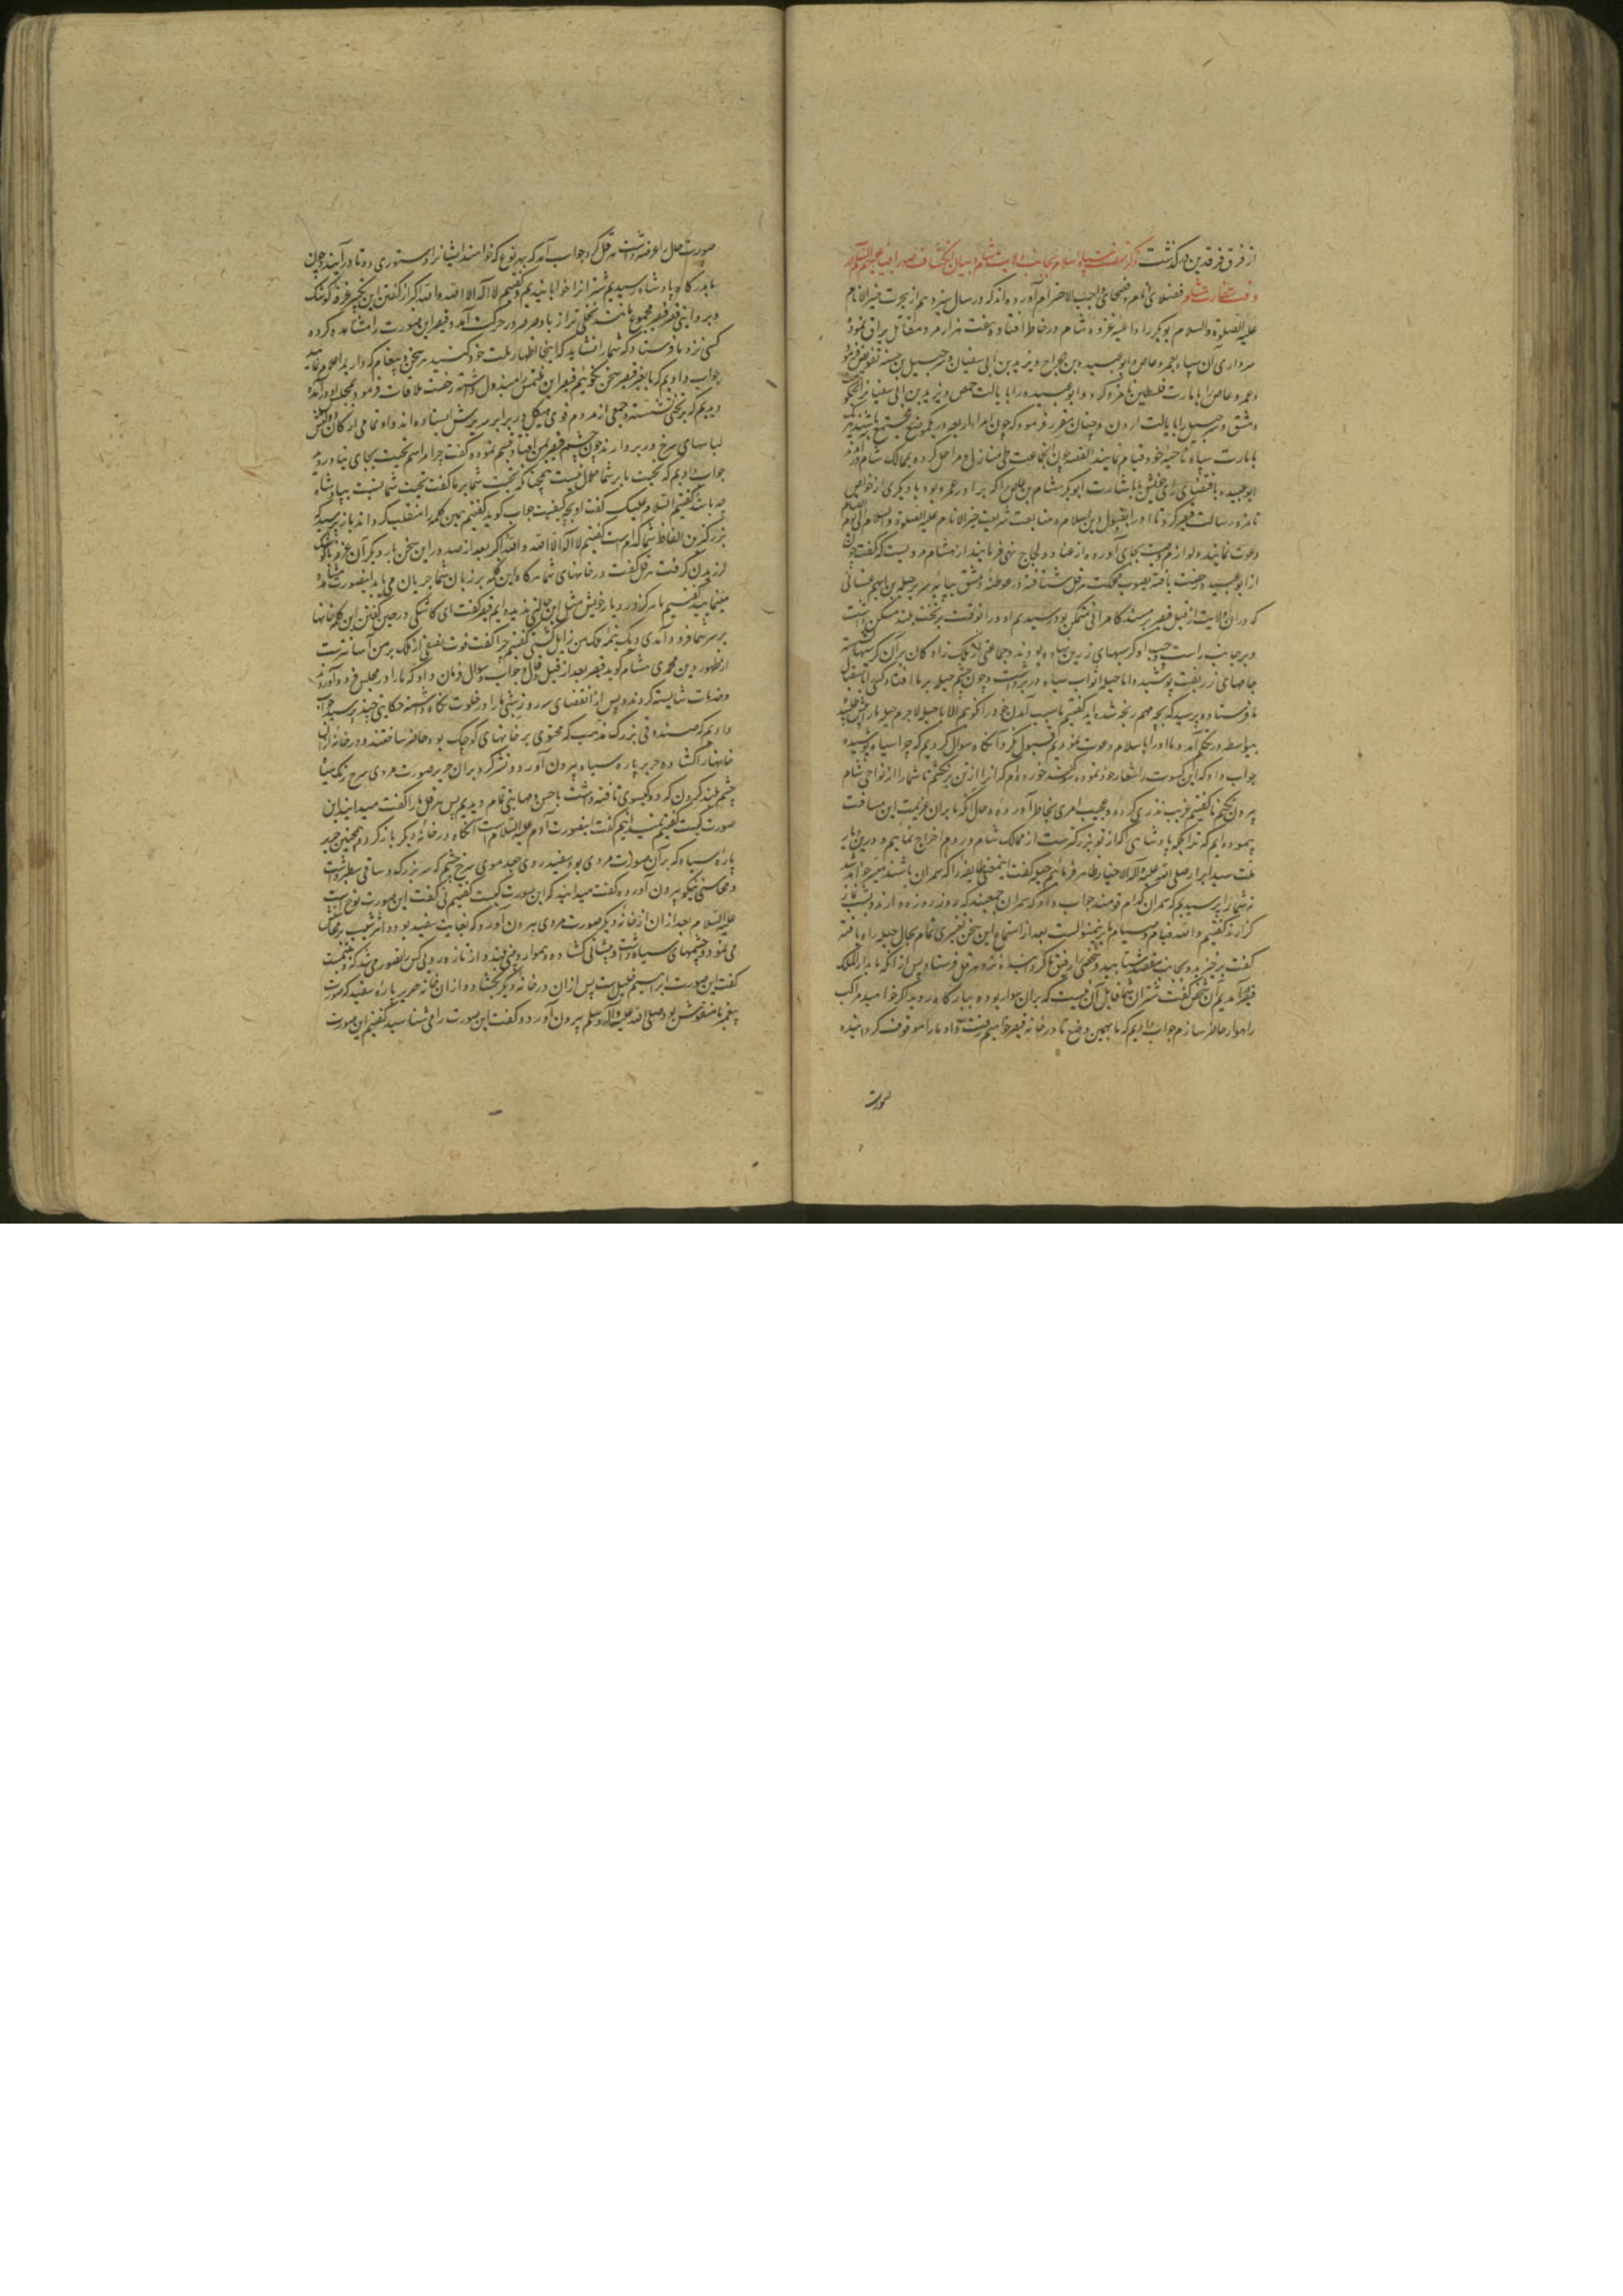 از فرق فرقدین درگذشت ذکر نهضت سپاه اسلام بجانب ولایت شام و بیان انکشاف صور انبیا علیهم السلام
فضلای انام و فصحای واجب الاحترام آورده‌اند که در سال سیزدهم از هجرت خیر الانام
علیه الصلوة والسلام ابوبکر را داعیه غزوه شام در خاطر افتاد و هفت هزار مرد مقاتل یراق نموده
سرداری آن سپاه بعمرو عاص و ابو عبیده بن جراح و یزید بن ابی سفیان و شرحبیل بن حسنه تفویض فرمود
و عمرو عاص را بامارت فلسطین نامزد کرد و ابو عبیده را بایالت حمص و یزید بن ابی سفیان را بحکومت
دمشق و شرحبیل را بایالت اردن و چنان مقرر فرمود که چون امراء اربعه در یک موضع مجتمع باشند
بامارت سپاه ناحیه خود قیام نمایند القصه چون آن جماعت طی منازل و مراحل کرده بممالک شام درآمدند
ابو عبیده باقتضای رای خویش یا باشارت ابوبکر هشام بن عاص را که برادر عمرو بود با دیگری از خواص
نامزد رسالت قیصر کرد تا او را بقبول دین اسلام و متابعت شریعت خیر الانام علیه الصلوة والسلام
دعوت نمایند و لوازم نصیحت بجای آورده از عناد و لجاج نهی فرمایند از هشام مرویست که گفت چون
از ابو عبیده رخصت یافته بصوب مملکت هرقل شتافته در غوطه دمشق بپایه سریر جبله بن ایهم غسانی
که در آن ولایت از قبل قیصر بر مسند کامرانی متمکن بود رسیدیم او در آن وقت بر تخت بلند مسکن داشت
و بر جانب راست و چپ او کرسیهای زرین نهاده بودند و جماعتی از ملک زادگان بر آن کرسیها نشسته
جامهای زربفت پوشیده اما جبله اثواب سیاه در بر داشت و چون چشم جبله بر ما افتاد کسی باستقبال
ما فرستاده پرسید که بچه مهم رنجه شده‌اید گفتیم ما سبب آمدن خود را نگوییم الا با جبله لاجرم جبله ما را پیش طلبید
بیواسطه در تکلم آمد و ما او را باسلام دعوت نمودیم قبول نکرد آنگاه سوال کردیم که چرا سیاه پوشیده
جواب داد که این کسوت را شعار خود نموده سوگند خورده‌ام که آنرا از تن بر نکشم تا شما را از نواحی شام
بیرون نکنم ما گفتیم غریب نذری کرده و عجیب امری بخاطر آورده و حال آنکه ما بر آن عزیمت این مسافت
پیموده‌ایم که ترا بلکه پادشاهی که از تو بزرگترست از ممالک شام و روم اخراج نماییم و درین دیار
ملت سید ابرار صلی الله علیه و آله الاخیار ظاهر فرماییم جبله گفت این معنی طایفه را که سمران باشند میسر خواهد شد
نه شما را پرسیدیم که سمران کدام قومند جواب داد که سمران جمعیند که روز روزه دارند و شب نماز
گزارند گفتیم والله قیام و صیام ما برین منوالست بعد از استماع این سخن تغییری تمام بحال جبله راه یافته
گفت برخیزید و بجانب مقصد شتابید و شخصی را رفیق ما کرد و نزد هرقل فرستاد پس از آنکه ما بدار الملک
قیصر آمدیم آن شخص گفت شتران شما قابل آن نیست که بر آن سوار بوده ببارگاه روید اگر خواهید مراکب
راهوار حاضر سازم جواب دادیم که ما بهمین وضع تا در خانه قیصر خواهیم رفت و او ما را موقوف گردانیده
صورت
صورت حال را عرضه داشت هرقل کرد جواب آمد که بهر نوع که خواهند ایشانرا دستوری ده تا در آیند و چون
بدرگاه پادشاه رسیدیم شترانرا خوابانیدیم و گفتیم لا اله الا الله والله اکبر از گفتن این تکبیر غرفه کوشک
و بروایتی قصر قیصر مجموع مانند نخلی تر از باد صرصر در حرکت آمد و قیصر این صورت را مشاهده کرده
کسی نزد ما فرستاد که شما را نشاید که اینجا اظهار ملت خود کنید هر سخن و پیغام که دارید اعلام نمایید
جواب دادیم که ما بغیر قیصر سخن نگوییم قیصر این ملتمس را مبذول داشته رخصت ملاقات فرمود بمجلس او درآمده
دیدیم که بر تختی نشسته و جمعی از مردم قوی هیکل در برابر سریرش ایستاده‌اند و او و تمامی ارکان دولتش
لباسهای سرخ در بر دارند چون چشم قیصر بر ما افتاد تبسم نموده گفت چرا مراسم تحیت بجای نیاوردید
جواب دادیم که تحیت ما بر شما حلال نیست همچنانکه تحیت شما بر ما گفت تحیت شما نسبت بپادشاه
چه باشد گفتیم السلام علیک گفت او بچه کیفیت جواب گوید گفتیم همین کلمه را منقلب گرداند باز پرسید که
بزرگترین الفاظ شما کدام است گفتیم لا اله الا الله والله اکبر بعد از صدور این سخن بار دیگر آن غرفه یا کوشک
لرزیدن گرفت هرقل گفت در خانهای شما هرگاه این کلمه بر زبان شما جریان می‌یابد این صورت مشاهده
مینمایید گفتیم ما هرگز در دیار خویش مثل این حالتی ندیده‌ایم قیصر گفت ای کاشکی در حین گفتن این کلمه خانها
بر سر شما فرود آمدی و یک نیمه ملک من زایل گشتی گفتیم چرا گفت فوت نصفی از ملک بر من آسانترست
از ظهور دین محمدی هشام گوید قیصر بعد از قیل و قال و جواب و سوال فرمان داد که ما را در مجلس فرود آوردند
و خدمات شایسته کردند و پس از انقضای سه روز شبی ما را در خلوت نگاه داشته حکایتی چند پرسید جواب
دادیم که صندوقی بزرگ مذهب که محتوی بر خانهای کوچک بود حاضر ساختند و در خانه از آن
خانها را گشاده حریر پاره سیاه بیرون آورد و نشر کرد بر آن حریر صورت مردی سرخ رنگ سیاه
چشم بلند گردن که دو گیسوی تافته داشت باحسن و مهابتی تمام دیدیم پس هرقل ما را گفت میدانید این
صورت کیست گفتیم نمیدانیم گفت این صورت آدم علیه السلام است آنگاه در خانه دیگر باز کرد و همچنین حریر
پاره سیاه که بر آن صورت مردی بود سفید روی جعد موی سرخ چشم که سر بزرگ و ساقی سطبر داشت
و محاسنی نیکو بیرون آورده گفت میدانید که این صورت کیست گفتیم نی گفت این صورت نوح است
علیه السلام بعد از آن از خانه دیگر صورت مردی بیرون آورد که بغایت سفید بود و اثر شیب بر محاسن
می‌نمود و چشمهای سیاه داشت و پیشانی گشاده و هموار و بینی بلند و از تازه رویی کس تصور می‌شد که در تبسمست
گفت این صورت ابراهیم خلیل است پس از آن در خانه دیگر بگشاد و از آن خانه حریر پاره سفید که صورت
پیغمبر ما منقوش بود صلی الله علیه و آله وسلم بیرون آورد و گفت این صورت را می‌شناسید گفتیم این صورت